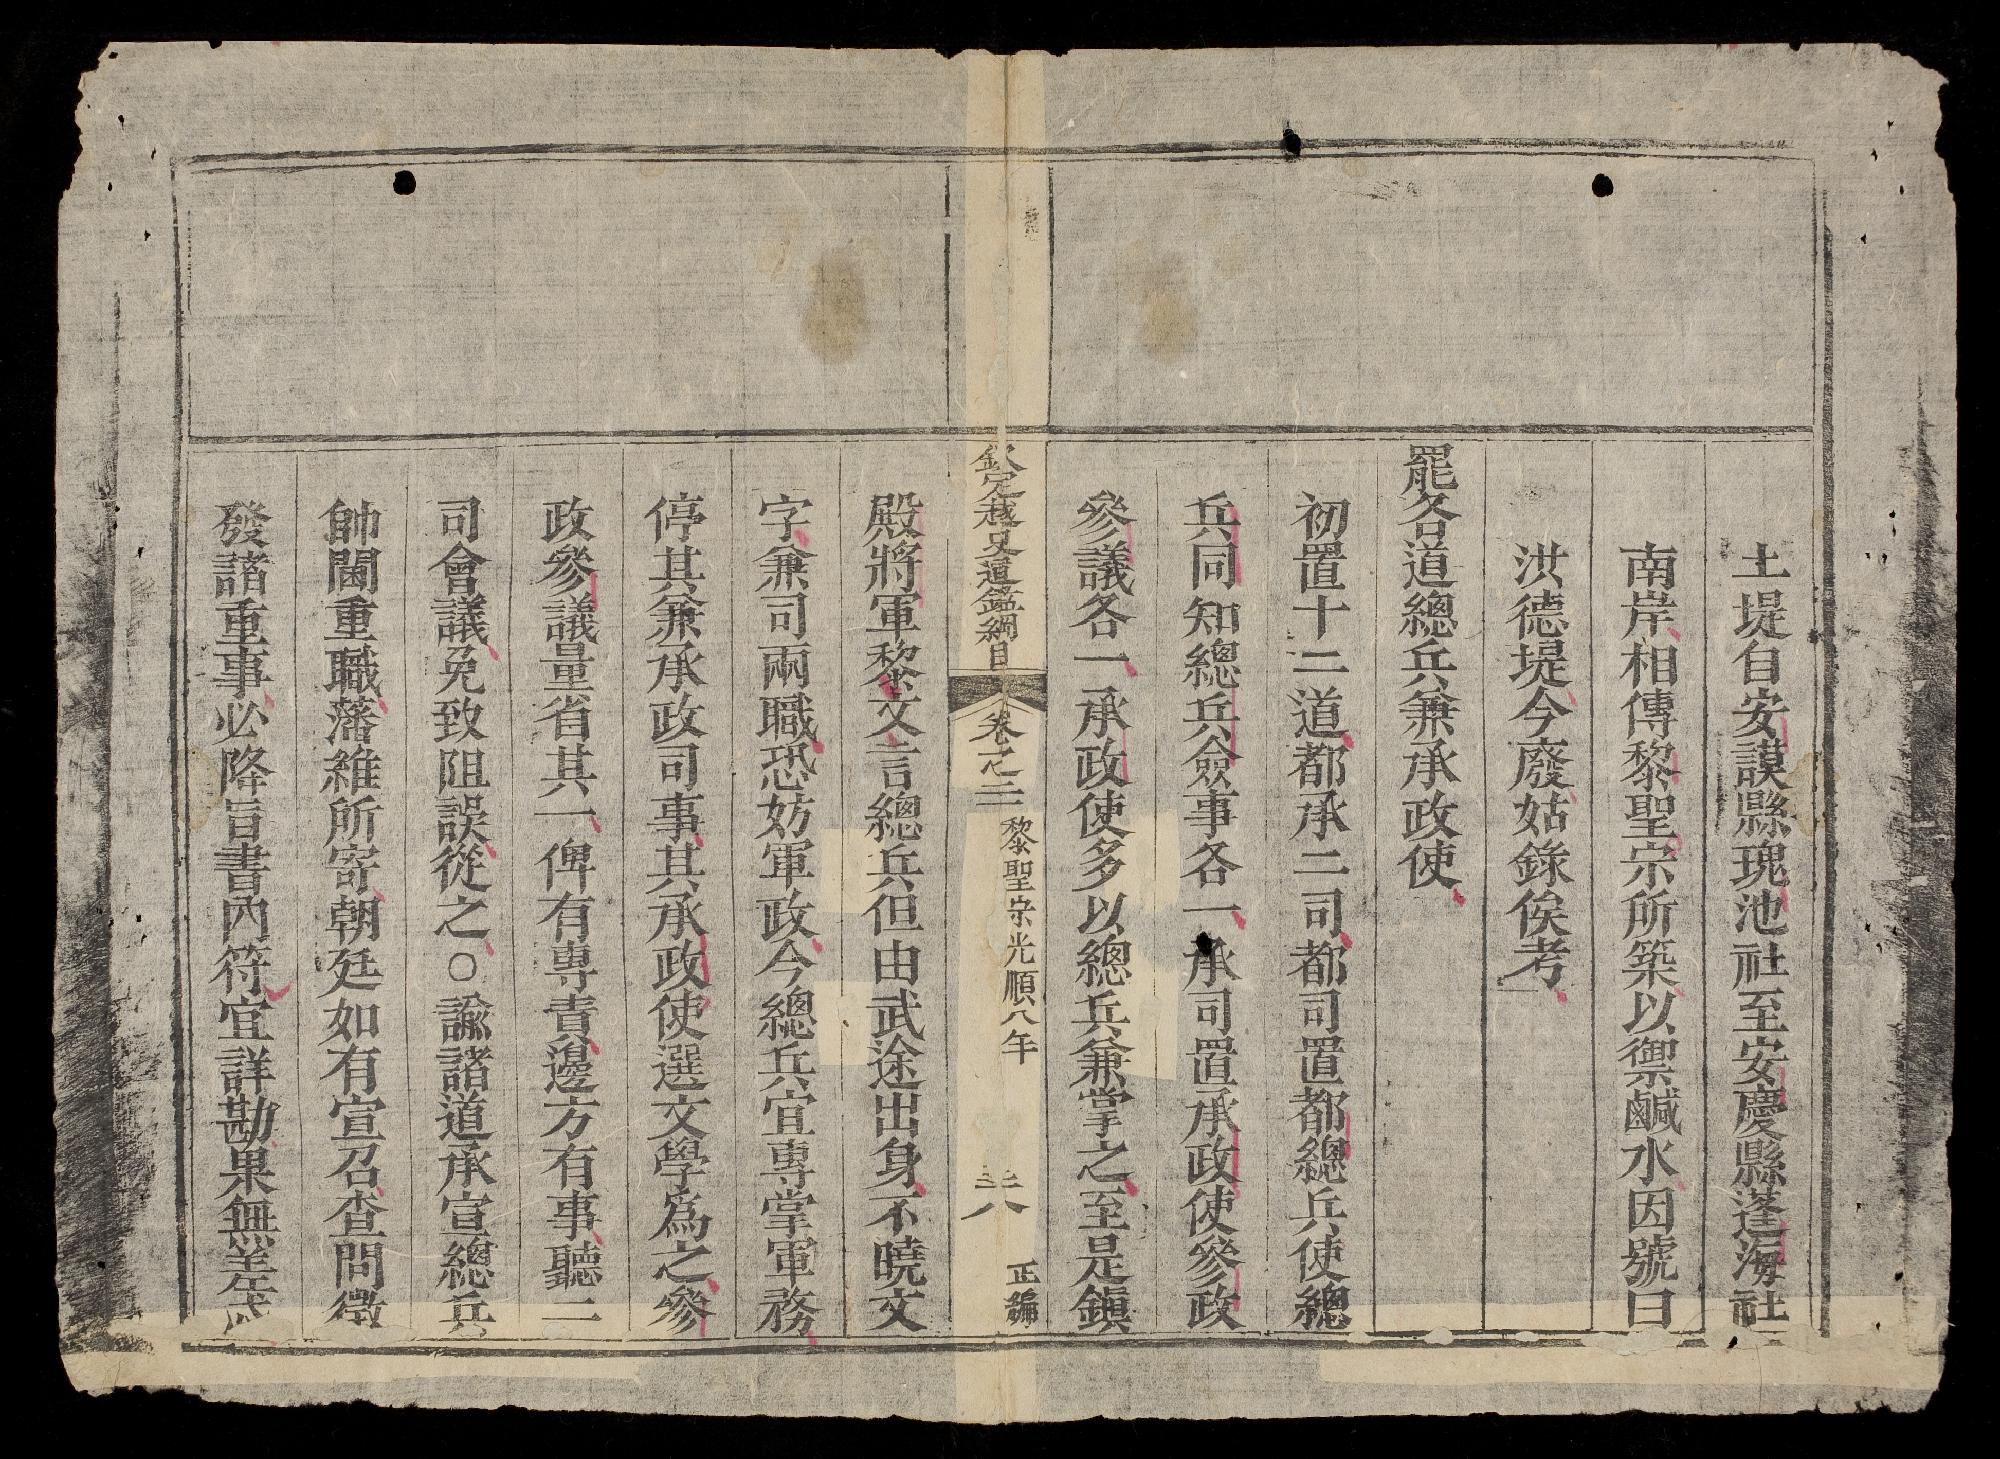 土堤自安謨縣瑰池社至安慶縣蓬海社
南岸相傳黎聖宗所築以禦鹹水因號曰
洪德堤今廢姑錄俟考
罷各道總兵兼承政使
初置十二道都承二司都司置都總兵使總
兵同知總兵僉事各一承司置承政使參政
參議各一承政使多以總兵兼掌之至是鎭
欽定越史通鑑綱目
卷之二
黎聖宗光順八年
三八
正編
殿將軍黎文言總兵但由武途出身不曉文
字兼司兩職恐妨軍政今總兵宜專掌軍務
停其兼承政司事其承政使選文學爲之參
政參議量省其一俾有專責邊方有事聽二
司會議免致阻誤從之○諭諸道承宣總兵
帥閫重職藩維所寄朝廷如有宣召查問徵
發諸重事必降旨書內符宜詳勘果無差